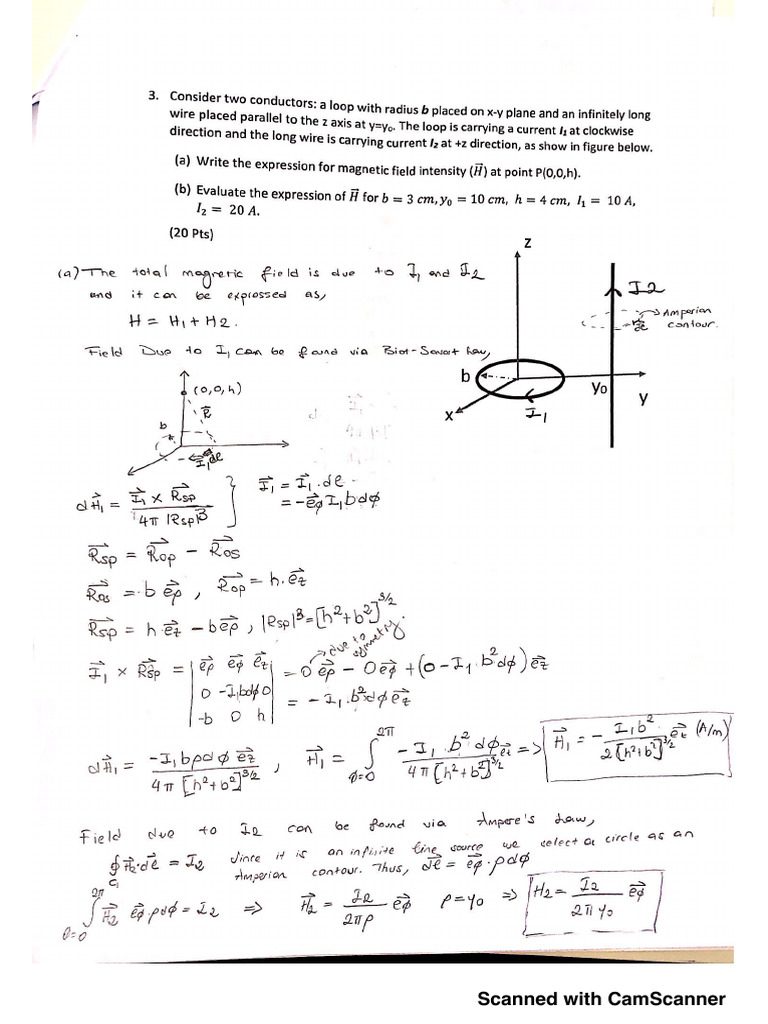 3. Consider two conductors: a loop with radius b placed on x-y plane and an infinitely long
wire placed parallel to the z axis at y=y₀. The loop is carrying a current I₁ at clockwise
direction and the long wire is carrying current I₂ at +z direction, as show in figure below.
(a) Write the expression for magnetic field intensity (H⃗) at point P(0,0,h).
(b) Evaluate the expression of H⃗ for b = 3 cm, y₀ = 10 cm, h = 4 cm, I₁ = 10 A,
I₂ = 20 A.
(20 Pts)
z
(a) The total magnetic field is due to I₁ and I2
and it can be expressed as,
H = H₁ + H2.
I2
Amperian
contour.
Field Due to I₁ can be found via Biot-Savart Law,
b
y₀
y
x
I₁
(0,0,h)
R⃗
b
I₁dl
dH⃗₁ = I⃗₁ × R⃗sp / 4π |Rsp|³ } I⃗₁ = I⃗₁ . dl
= -e⃗ϕ I₁ b dϕ
R⃗sp = R⃗op - R⃗os
R⃗os = b e⃗ρ , R⃗op = h. e⃗z
R⃗sp = h e⃗z - b e⃗ρ , |Rsp|³ = [h²+b²]^3/2
due to symmetry.
I⃗₁ × R⃗sp = | e⃗ρ e⃗ϕ e⃗z | = 0 e⃗ρ - 0 e⃗ϕ + (0 - I₁ . b² dϕ) e⃗z
| 0 -I₁bdϕ 0 | = - I₁ . b² dϕ e⃗z
| -b 0 h |
dH⃗₁ = -I₁ bρdϕ e⃗z / 4π [h²+b²]^3/2 , H⃗₁ = ∫ ϕ=0 2π -I₁ . b² dϕ e⃗z / 4π [h²+b²]^3/2 => H⃗₁ = - I₁ b² / 2 [h²+b²]^3/2 e⃗z (A/m)
Field due to I2 can be found via Ampere's Law,
∮ C₁ H⃗2 . dl⃗ = I2 Since it is an infinite line source we select a circle as an
Amperian contour. Thus, dl⃗ = e⃗ϕ . ρdϕ
∫ 0=0 2π H⃗2 e⃗ϕ . ρdϕ = I2 => H⃗2 = I2 / 2πρ e⃗ϕ ρ = y₀ => H2 = I2 / 2π y₀ e⃗ϕ
Scanned with CamScanner